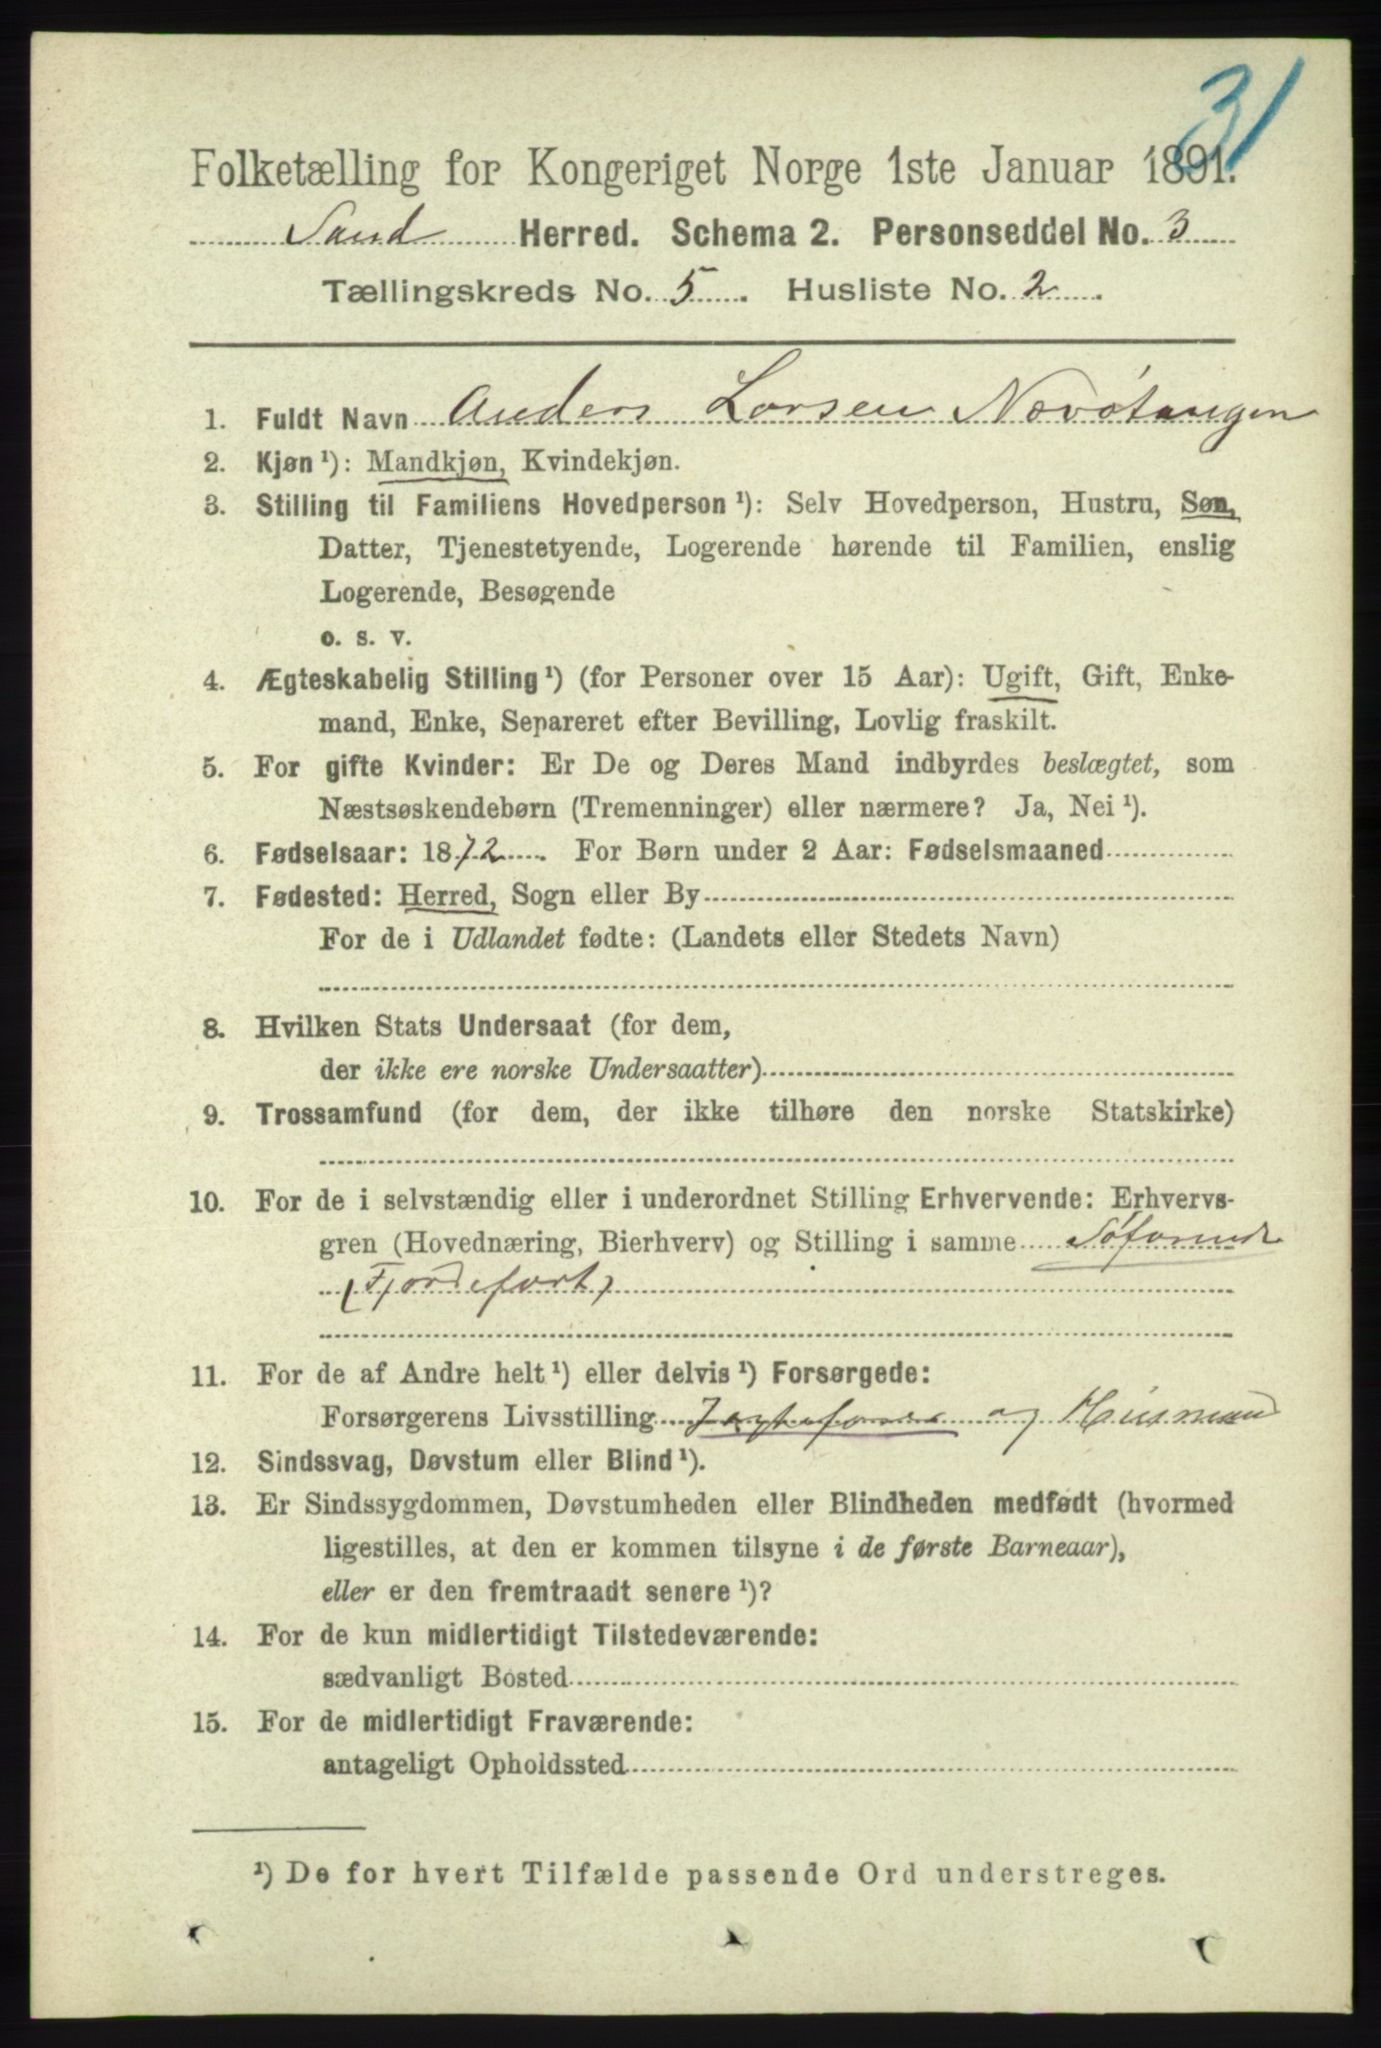 31
Folketælling for Kongeriget Norge 1ste Januar 1891.
Sand Herred. Schema 2. Personseddel No. 3
Tællingskreds No. 5. Husliste No. 2.
1. Fuldt Navn Anders Larsen Nævötangen
2. Kjøn ¹): Mandkjøn, Kvindekjøn.
3. Stilling til Familiens Hovedperson ¹): Selv Hovedperson, Hustru, Søn,
Datter, Tjenestetyende, Logerende hørende til Familien, enslig
Logerende, Besøgende
o. s. v.
4. Ægteskabelig Stilling ¹) (for Personer over 15 Aar): Ugift, Gift, Enke-
mand, Enke, Separeret efter Bevilling, Lovlig fraskilt.
5. For gifte Kvinder: Er De og Deres Mand indbyrdes beslægtet, som
Næstsøskendebørn (Tremenninger) eller nærmere? Ja, Nei ¹).
6. Fødselsaar: 1872. For Børn under 2 Aar: Fødselsmaaned
7. Fødested: Herred, Sogn eller By
For de i Udlandet fødte: (Landets eller Stedets Navn)
8. Hvilken Stats Undersaat (for dem,
der ikke ere norske Undersaatter)
9. Trossamfund (for dem, der ikke tilhøre den norske Statskirke)
10. For de i selvstændig eller i underordnet Stilling Erhvervende: Erhvervs-
gren (Hovednæring, Bierhverv) og Stilling i samme Söfarende
(Fjordefart)
11. For de af Andre helt ¹) eller delvis ¹) Forsørgede:
Forsørgerens Livsstilling Jagtefører og Husmand
12. Sindssvag, Døvstum eller Blind ¹).
13. Er Sindssygdommen, Døvstumheden eller Blindheden medfødt (hvormed
ligestilles, at den er kommen tilsyne i de første Barneaar),
eller er den fremtraadt senere ¹)?
14. For de kun midlertidigt Tilstedeværende:
sædvanligt Bosted
15. For de midlertidigt Fraværende:
antageligt Opholdssted
¹) De for hvert Tilfælde passende Ord understreges.